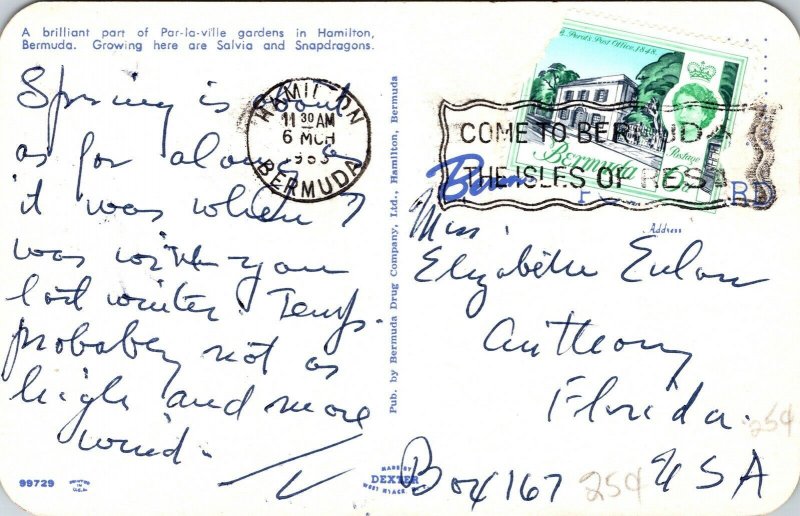 A brilliant part of Par-la-ville gardens in Hamilton,
Bermuda. Growing here are Salvia and Snapdragons.
Spring is about
as far along as
it was when I
was with you
last winter. Temps.
probably not as
high and more
wind.
HAMILTON
11 30 AM
6 MCH
BERMUDA
Pub. by Bermuda Drug Company, Ltd., Hamilton, Bermuda
Perot's Post Office, 1848.
Bermuda
Postage
COME TO BERMUDA
THE ISLES OF REST
Address
Miss.
Elizabeth
Anthony
Florida.
Box 167 USA
25¢
25¢
99729
PRINTED
IN
U.S.A.
MADE BY
DEXTER
WEST NYACK